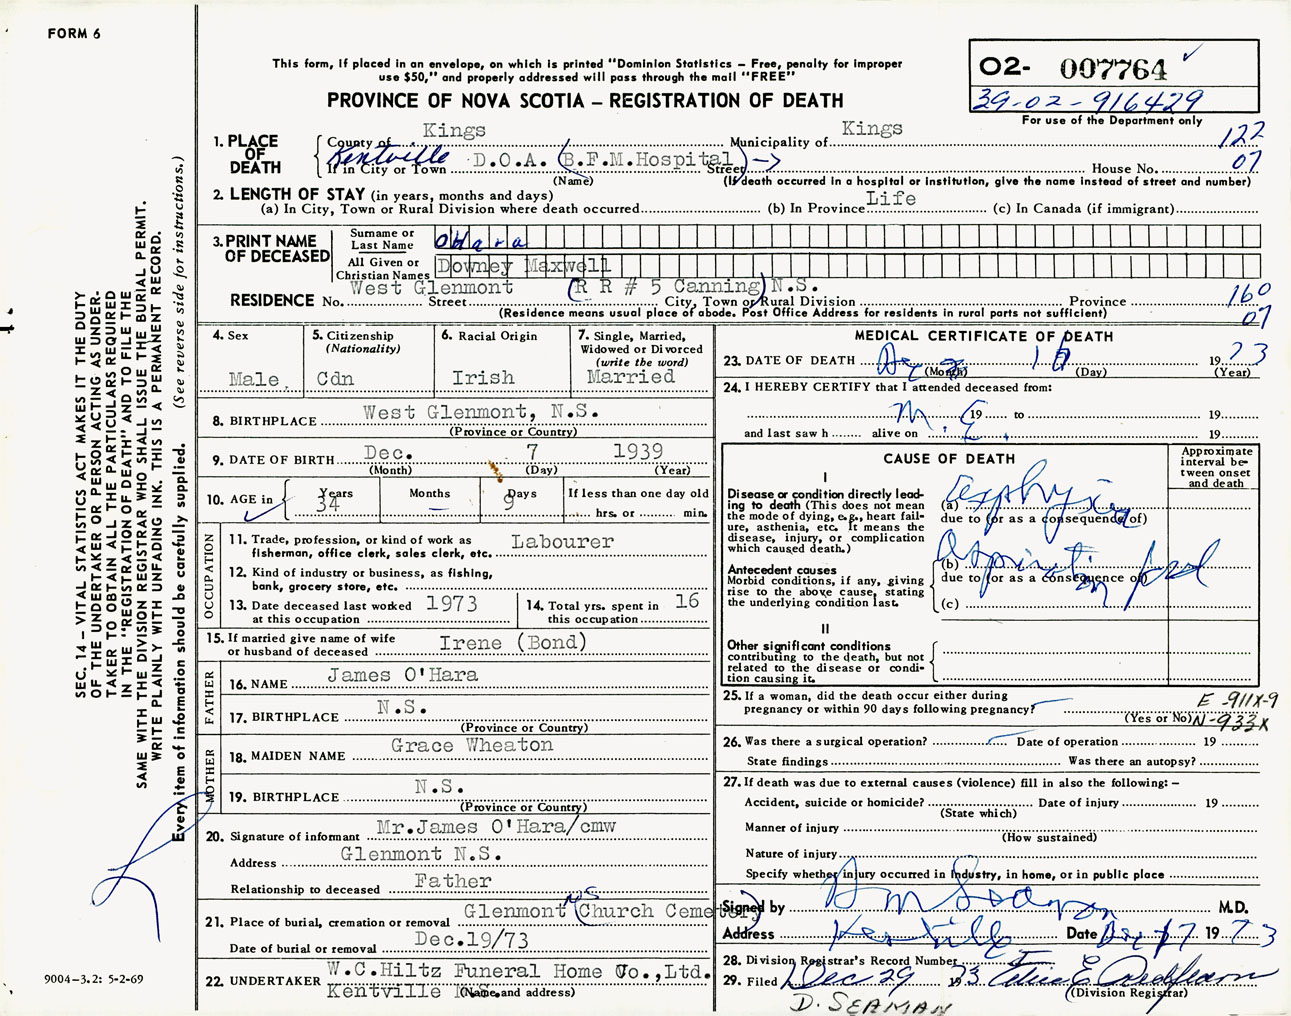 FORM 6
This form, if placed in an envelope, on which is printed "Dominion Statistics – Free, penalty for improper
use $50," and properly addressed will pass through the mail "FREE"
PROVINCE OF NOVA SCOTIA – REGISTRATION OF DEATH
02- 007764
39-02-916429
For use of the Department only
1. PLACE OF DEATH
County of Kings Municipality of Kings 122
Kentville D.O.A. (B.F.M.Hospital) 07
If in City or Town Street House No.
(Name) (If death occurred in a hospital or institution, give the name instead of street and number)
2. LENGTH OF STAY (in years, months and days)
(a) In City, Town or Rural Division where death occurred (b) In Province Life (c) In Canada (if immigrant)
3. PRINT NAME OF DECEASED
Surname or Last Name Ohara
All Given or Christian Names Downey Maxwell
RESIDENCE No. West Glenmont Street (R R # 5 Canning) N.S. City, Town or Rural Division Province 160
(Residence means usual place of abode. Post Office Address for residents in rural parts not sufficient) 07
4. Sex
Male
5. Citizenship
(Nationality)
Cdn
6. Racial Origin
Irish
7. Single, Married,
Widowed or Divorced
(write the word)
Married
8. BIRTHPLACE West Glenmont, N.S.
(Province or Country)
9. DATE OF BIRTH Dec. 7 1939
(Month) (Day) (Year)
10. AGE in Years Months Days If less than one day old
34 – 9 hrs. or min.
OCCUPATION
11. Trade, profession, or kind of work as
fisherman, office clerk, sales clerk, etc. Labourer
12. Kind of industry or business, as fishing,
bank, grocery store, etc.
13. Date deceased last worked
at this occupation 1973
14. Total yrs. spent in
this occupation 16
15. If married give name of wife
or husband of deceased Irene (Bond)
FATHER
16. NAME James O'Hara
17. BIRTHPLACE N.S.
(Province or Country)
MOTHER
18. MAIDEN NAME Grace Wheaton
19. BIRTHPLACE N.S.
(Province or Country)
20. Signature of informant Mr.James O'Hara/cmw
Address Glenmont N.S.
Relationship to deceased Father
21. Place of burial, cremation or removal Glenmont NS (Church Cemetery)
Date of burial or removal Dec.19/73
22. UNDERTAKER W.C.Hiltz Funeral Home Co.,Ltd.
Kentville N.S.
(Name and address)
MEDICAL CERTIFICATE OF DEATH
23. DATE OF DEATH Dec 16 1973
(Month) (Day) (Year)
24. I HEREBY CERTIFY that I attended deceased from:
M.E. 19 to 19
and last saw h alive on 19
CAUSE OF DEATH
Approximate
interval be-
tween onset
and death
I
Disease or condition directly lead-
ing to death (This does not
mean the mode of dying, e.g., heart fail-
ure, asthenia, etc. It means the
disease, injury, or complication
which caused death.)
(a) Asphyxia
due to (or as a consequence of)
Antecedent causes
Morbid conditions, if any, giving
rise to the above cause, stating
the underlying condition last.
(b) Aspiration food
due to (or as a consequence of)
(c)
II
Other significant conditions
contributing to the death, but not
related to the disease or condi-
tion causing it.
25. If a woman, did the death occur either during
pregnancy or within 90 days following pregnancy?
(Yes or No)
E-911X-9
N-933X
26. Was there a surgical operation? Date of operation 19
State findings Was there an autopsy?
27. If death was due to external causes (violence) fill in also the following: –
Accident, suicide or homicide? Date of injury 19
(State which)
Manner of injury
(How sustained)
Nature of injury
Specify whether injury occurred in industry, in home, or in public place
Signed by D M Seaman M.D.
Address Kentville Date Dec 17 1973
28. Division Registrar's Record Number
29. Filed Dec 29 1973
(Division Registrar)
D. SEAMAN
SEC. 14 – VITAL STATISTICS ACT MAKES IT THE DUTY
OF THE UNDERTAKER OR PERSON ACTING AS UNDER-
TAKER TO OBTAIN ALL THE PARTICULARS REQUIRED
IN THE "REGISTRATION OF DEATH" AND TO FILE THE
SAME WITH THE DIVISION REGISTRAR WHO SHALL ISSUE THE BURIAL PERMIT.
WRITE PLAINLY WITH UNFADING INK. THIS IS A PERMANENT RECORD.
Every item of information should be carefully supplied. (See reverse side for instructions.)
9004–3.2: 5-2-69